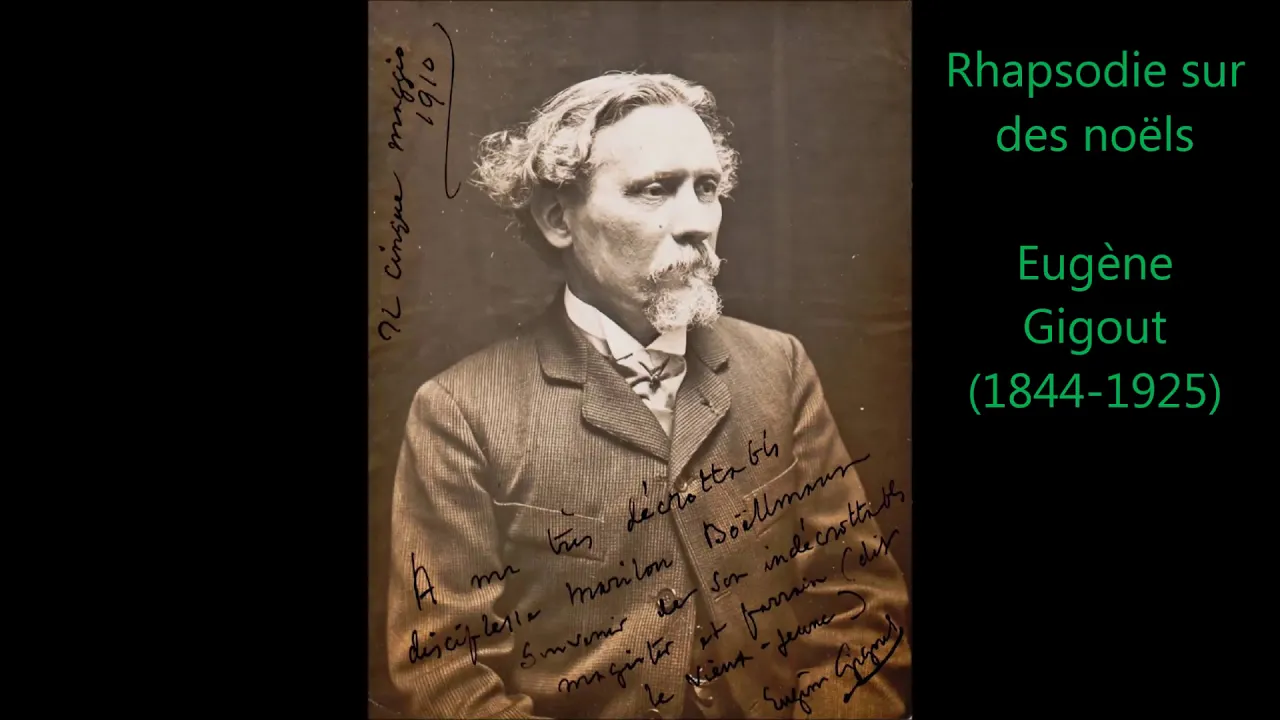 Il cinque maggio
1910
À ma très décrottable
disciplesse Marilou Boëllmann
Souvenir de son indécrottable
magister et parrain (dit
le vieux-jeune)
Eugène Gigout
Rhapsodie sur
des noëls
Eugène
Gigout
(1844-1925)